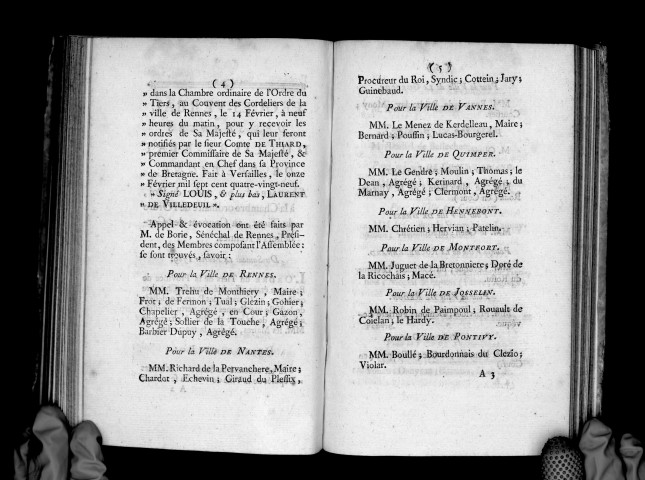 ( 4 )
» dans la Chambre ordinaire de l'Ordre du
» Tiers, au Couvent des Cordeliers de la
» ville de Rennes, le 14 Février, à neuf
» heures du matin, pour y recevoir les
» ordres de Sa Majesté, qui leur feront
» notifiés par le sieur Comte DE THIARD,
» premier Commissaire de Sa Majesté, &
» Commandant en Chef dans sa Province
» de Bretagne. Fait à Versailles, le onze
» Février mil sept cent quatre-vingt-neuf.
» Signé LOUIS, & plus bas, LAURENT
» DE VILLEDEUIL ».
Appel & évocation ont été faits par
M. de Borie, Sénéchal de Rennes, Prési-
dent, des Membres composant l'Assemblée:
se sont trouvés, savoir:
Pour la Ville DE RENNES.
MM. Trehu de Monthiery, Maire;
Frot; de Fermon; Tual; Glézin; Gohier;
Chapelier, Agrégé, en Cour; Gazon,
Agrégé; Sollier de la Touche, Agrégé;
Barbier Dupuy, Agrégé.
Pour la Ville DE NANTES.
MM. Richard de la Pervanchere, Maire;
Chardot, Echevin; Giraud du Plessix,
( 5 )
Procureur du Roi, Syndic; Cottein; Jary;
Guinebaud.
Pour la Ville DE VANNES.
MM. Le Menez de Kerdelleau, Maire;
Bernard; Poussin; Lucas-Bourgerel.
Pour la Ville DE QUIMPER.
MM. Le Gendre; Moulin; Thomas; le
Dean, Agrégé; Kerinard, Agrégé; du
Marnay, Agrégé; Clermont, Agrégé.
Pour la Ville DE HENNEBONT.
MM. Chrétien; Hervian; Patelin.
Pour la Ville DE MONTFORT.
MM. Juguet de la Bretonniere; Doré de
la Ricochais; Macé.
Pour la Ville DE JOSSELIN.
MM. Robin de Paimpoul; Rouault de
Coielan; le Hardy.
Pour la Ville DE PONTIVY.
MM. Boullé; Bourdonnais du Clezio;
Violar.
A 3